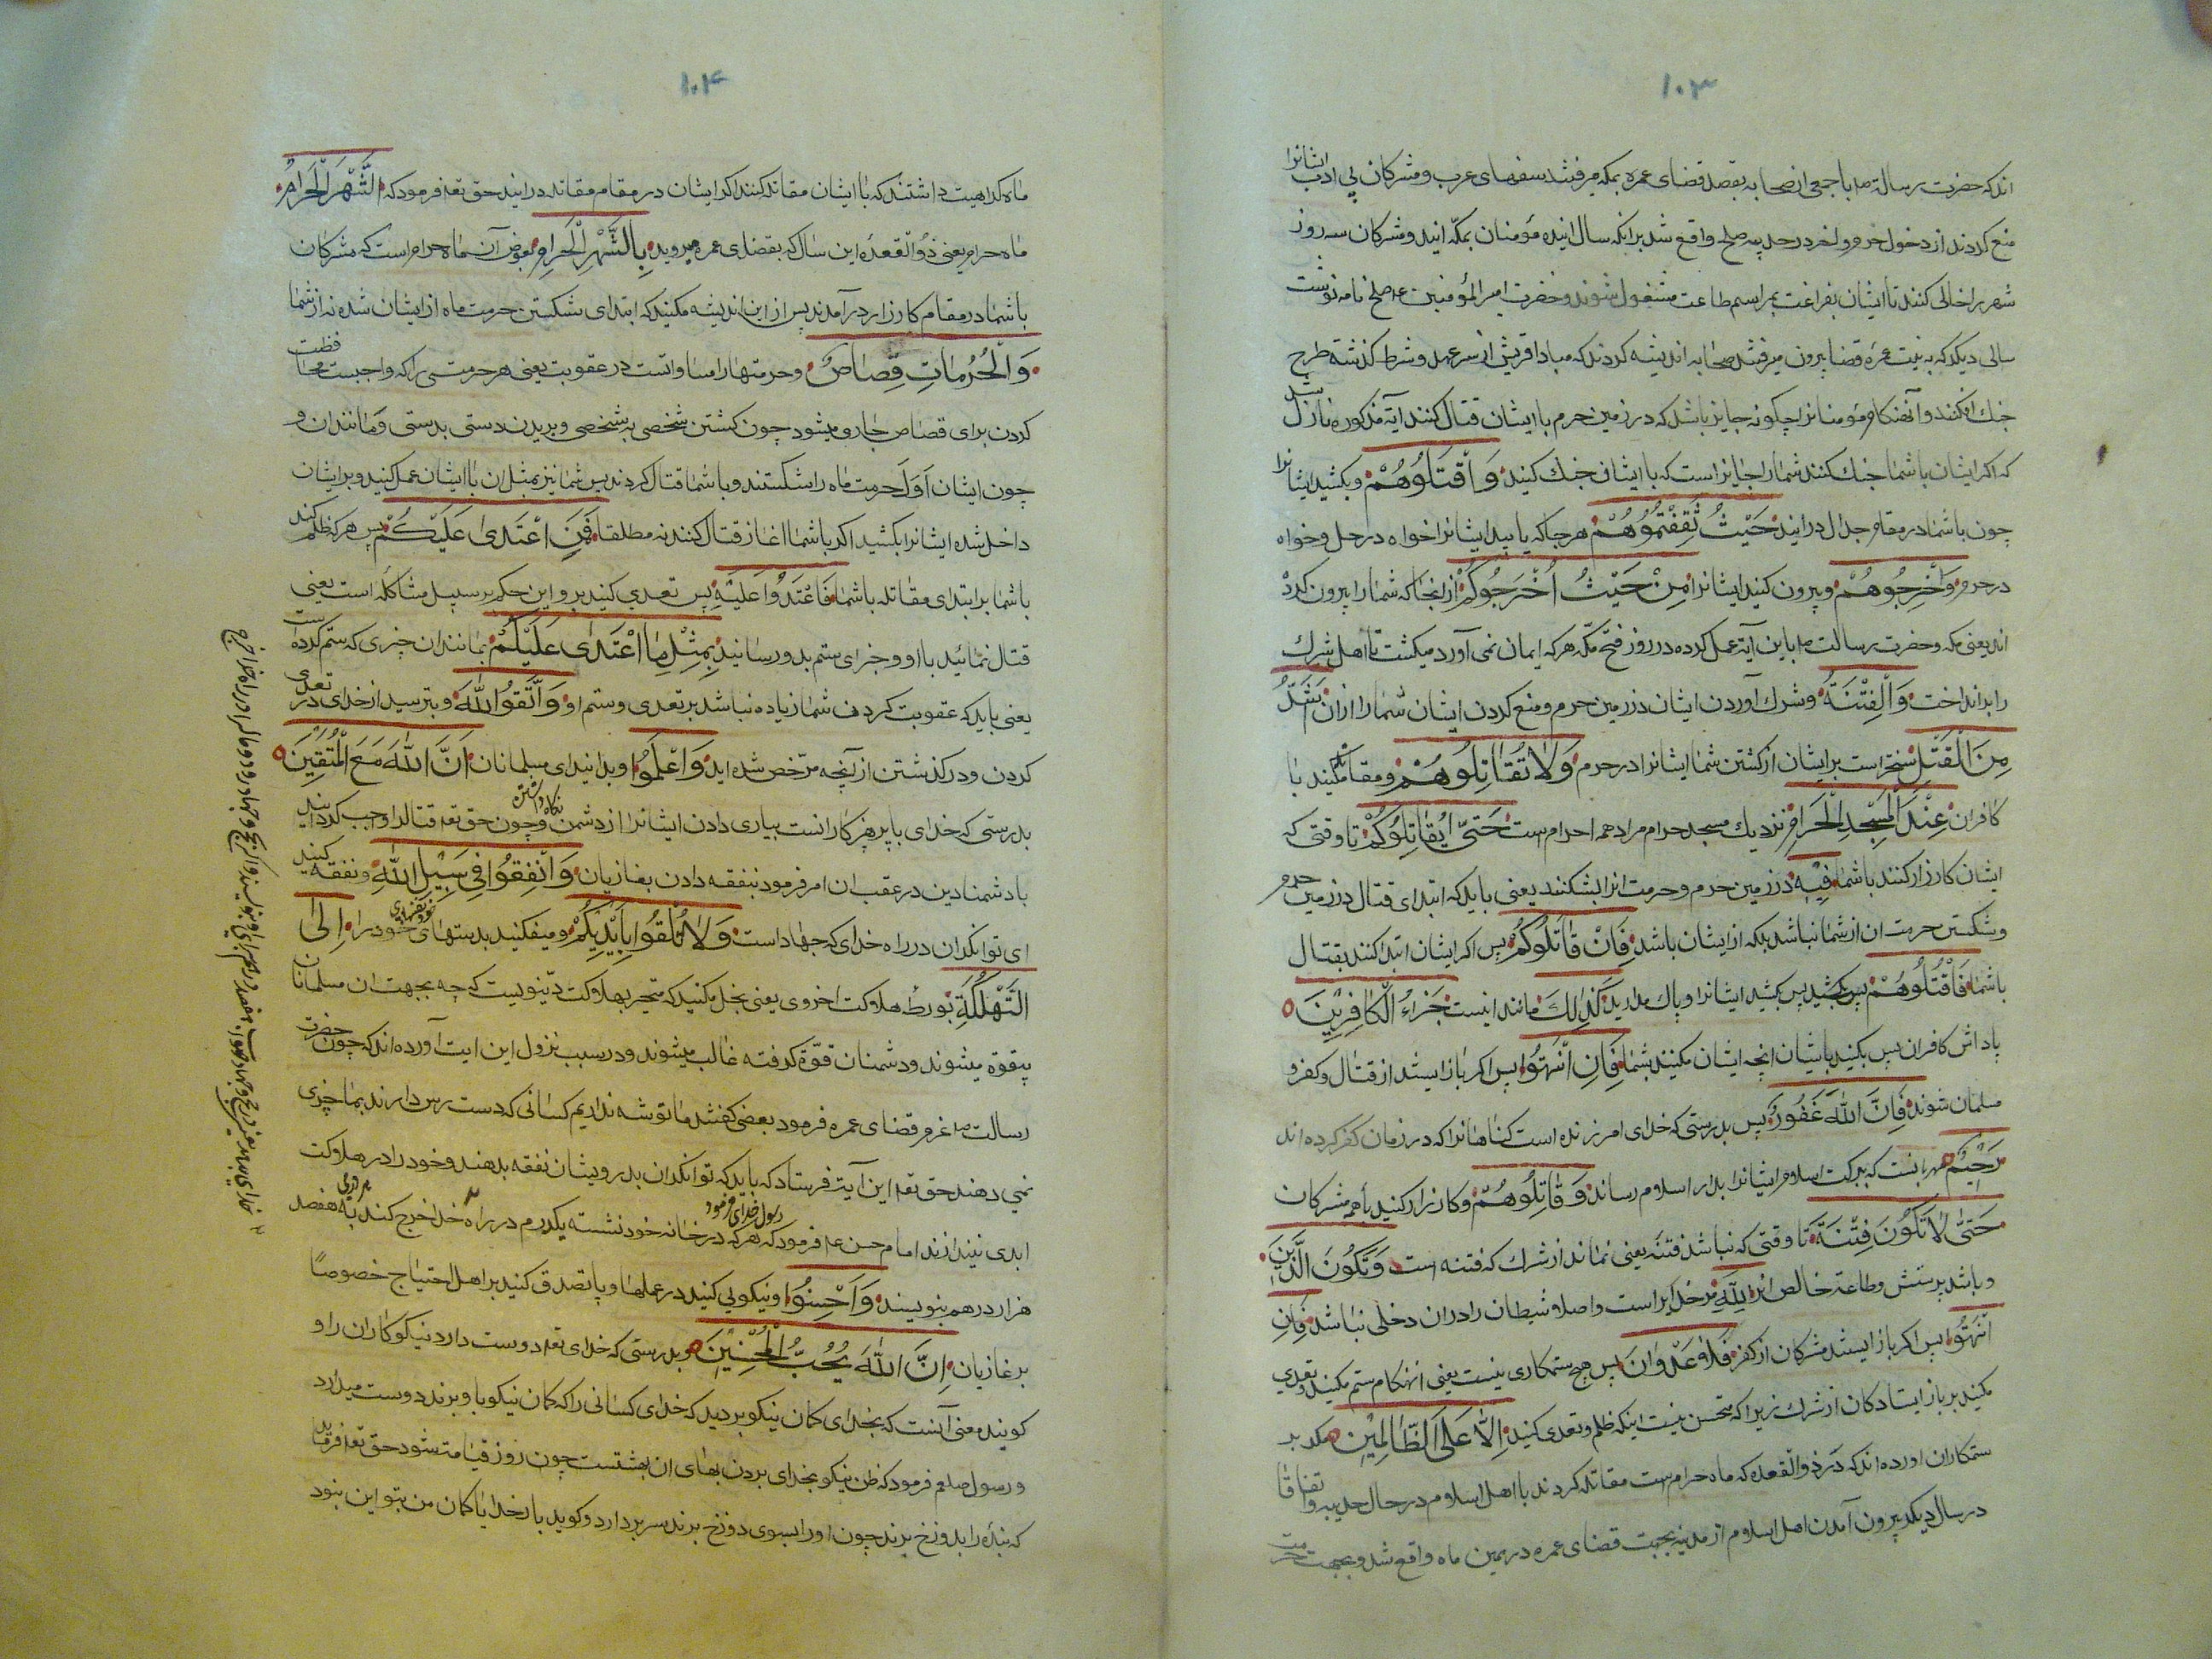 ۱۰۳
اند که حضرت رسالة ص با جمعی از صحابه بقصد قضای عمره بمکه میرفتند سفهای عرب و مشرکان بی ادب ایشانرا
منع کردند از دخول حرم و آخر در حدیبیه صلح واقع شد برانکه سال اینده مؤمنان بمکه آیند و مشرکان سه روز
شهر را خالی کنند تا ایشان بفراغت بمراسم طاعت مشغول شوند و حضرت امیر المؤمنین ع صلح نامه نوشت
سالی دیکر که به نیت عمره قضا بیرون میرفتند صحابه اندیشه کردند که مبادا قریش از سر عهد و شرط کذشته طرح
جنك افکنند و آنهنکام مؤمنانرا چکونه جایز باشد که در زمین حرم با ایشان قتال کنند آیه مذکوره نازل شد
که اکر ایشان با شما جنك کنند شما را جایز است که با ایشان جنك کنید وَاقْتُلُوهُمْ و بکشید ایشانرا
چون با شما در مقام جدال درایند حَيْثُ ثَقِفْتُمُوهُمْ هر جا که یابید ایشانرا خواه در حل و خواه
در حرم وَاَخْرِجُوهُمْ و بیرون کنید ایشانرا مِنْ حَيْثُ اَخْرَجُوكُمْ از انجا که شما را بیرون کرد
اند یعنی مکه و حضرت رسالت ص باین آیه عمل کرده در روز فتح مکه هر که ایمان نمی آورد میکشت تا اهل شرك
را برانداخت وَالْفِتْنَةُ و شرك آوردن ایشان در زمین حرم و منع کردن ایشان شما را ازان اَشَدُّ
مِنَ الْقَتْلِ سختراست بر ایشان از کشتن شما ایشانرا در حرم وَلَا تُقَاتِلُوهُمْ و مقاتله مکنید با
کافران عِنْدَ الْمَسْجِدِ الْحَرَامِ نزدیك مسجد حرام مراد همه احرام است حَتّى يُقَاتِلُوكُمْ تا وقتی که
ایشان کارزار کنند با شما فِيْهِ در زمین حرم و حرمت انرا بشکنند یعنی باید که ابتدای قتال در زمین حرم
و شکستن حرمت ان از شما نباشد بلکه از ایشان باشد فَاِنْ قَاتَلُوكُمْ پس اکر ایشان ابتدا کنند بقتال
با شما فَاقْتُلُوهُمْ پس بکشید پس بکشید ایشانرا و پاك مدارید كَذٰلِكَ مانند اینست جَزَاءُ الْكَافِرِيْنَ
پاداش کافران پس بکنید با ایشان انچه ایشان میکنند بشما فَاِنِ انْتَهَوْا پس اکر باز ایستند از قتال و کفر و
مسلمان شوند فَاِنَّ اللهَ غَفُورٌ پس بدرستی که خدای امرزنده است کناهانرا که در زمان کفر کرده اند
رَحِيْمٌ مهربانست که ببرکت اسلام ایشانرا بدار اسلام رساند وَقَاتِلُوهُمْ و کارزار کنید با همه مشرکان
حَتّى لَا تَكُونَ فِتْنَةٌ تا وقتی که نباشد فتنه یعنی نماند از شرك که فتنه است وَيَكُونَ الدِّيْنُ
و باشد پرستش و طاعة خالص انرا لِلّٰهِ مر خدایراست و اصلا شیطان را دران دخلی نباشد فَاِنِ
انْتَهَوْا پس اکر باز ایستند مشرکان از کفر فَلَا عُدْوَانَ پس هیچ ستمکاری نیست یعنی انهنکام ستم مکنید و تعدی
مکنید بر باز ایستادکان از شرك زیرا که متحسن نیست اینکه ظلم و تعدی کنید اِلَّا عَلَى الظَّالِمِيْنَ مکر بر
ستمکاران اورده اند که در ذو القعده که ماه حرام است مقاتله کردند با اهل اسلام در حال حدیبیه و اتفاقا
در سال دیکر بیرون آمدن اهل اسلام از مدینه بجهت قضای عمره در همین ماه واقع شد و بجهت حرمت
۱۰۴
ماه کراهیت داشتند که با ایشان مقاتله کنند اکر ایشان در مقام مقاتله درایند حق تعه فرمود که اَلشَّهْرُ الْحَرَامُ
ماه حرام یعنی ذو القعده این سال که بقضای عمره میروید بِالشَّهْرِ الْحَرَامِ بعوض آن ماه حرام است که مشرکان
با شما در مقام کارزار درآمدند پس از این اندیشه مکنید که ابتدای شکستن حرمت ماه از ایشان شده نه از شما
وَالْحُرُمَاتِ قِصَاصٌ و حرمتها را مساواتست در عقوبت یعنی هر حرمتی را که واجبست محافظت
کردن برای قصاص جاری میشود چون کشتن شخصی به شخصی و بریدن دستی بدستی و مانند ان و
چون ایشان اول حرمت ماه را شکستند و با شما قتال کردند پس شما نیز بمثل ان با ایشان عمل کنید و بر ایشان
داخل شده ایشانرا بکشید اکر با شما اغاز قتال کنند نه مطلقا فَمَنِ اعْتَدى عَلَيْكُمْ پس هر که ظلم کند
با شما بر ابتدای مقاتله با شما فَاعْتَدُوا عَلَيْهِ پس تعدی کنید برو این حکم بر سبیل مشاکله است یعنی
قتال نمائید با او و جزای ستم بدو رسانید بِمِثْلِ مَا اعْتَدى عَلَيْكُمْ بمانند ان چیزی که ستم کرده است
یعنی باید که عقوبت کردن شما زیاده نباشد بر تعدی و ستم او وَاتَّقُوا اللهَ و بترسید از خدای در تعدی
کردن و در کذشتن از آنچه مرخص شده اید وَاعْلَمُوا و بدانید ای مسلمانان اَنَّ اللهَ مَعَ الْمُتَّقِيْنَ
بدرستی که خدای با پرهیزکارانست بیاری دادن ایشانرا از دشمن نکاه داشتن و چون حق تعه قتال را وجب کردانید
با دشمنان دین در عقب ان امر فرمود بنفقه دادن بغازیان وَاَنْفِقُوا فِي سَبِيْلِ اللهِ و نفقه کنید
ای توانکران در راه خدای که جهاد است وَلَا تُلْقُوا بِاَيْدِيكُمْ و میفکنید بدستهای خود نفسهای خود را اِلَى
التَّهْلُكَةِ بورطه هلاکت اخروی یعنی بخل مکنید که منجر بهلاکت دنیویست که چه بجهت ان مسلمانان
بیقوه میشوند و دشمنان قوة کرفته غالب میشوند و در سبب نزول این ایت آورده اند که چون حضرت
رسالت ص عزم قضای عمره فرمود بعضی کفتند ما توشه نداریم کسانی که دست رس دارند بما چیزی
نمی دهند حق تعه این آیة فرستاد که باید که توانکران بدرویشان نفقه بدهند و خود را در هلاکت
ابدی نیندازند امام حسن ع فرمود که رسول خدای فرمود هر که در خانه خود نشسته یکدرم در راه خدا خرج کند به هر درمی هفصد
هزار درهم بنویسند وَاَحْسِنُوا و نیکویی کنید در عملها و یا تصدق کنید بر اهل احتیاج خصوصًا
بر غازیان اِنَّ اللهَ يُحِبُّ الْمُحْسِنِيْنَ بدرستی که خدای تعه دوست دارد نیکوکاران را و
کویند معنی آنست که بخدای کمان نیکو برید که خدای کسانی را که کمان نیکو باو برند دوست میدارد
و رسول صلعم فرمود که ظن نیکو بخدای بردن بهای ان بهشتست چون روز قیامت شود حق تعه فرماید
که بنده را بدوزخ برند چون او را بسوی دوزخ برند سر بردارد و کوید بار خدایا کمان من بتو این نبود